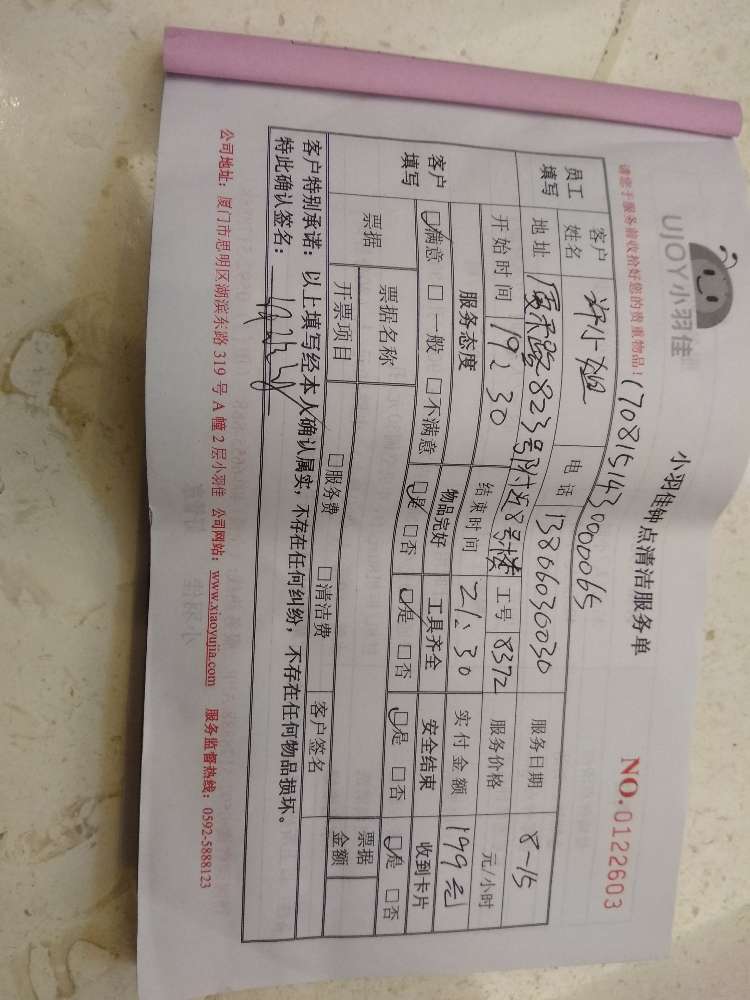 UJOY小羽佳
小羽佳钟点清洁服务单
NO.0122603
请您于服务前收拾好您的贵重物品！
170815143000065
员工填写 客户姓名 许小姐 电话 13806030030 服务日期 8-15
地址 厦禾路823号附近8号楼 工号 8372 服务价格 元/小时
开始时间 19:30 结束时间 21:30 实付金额 199元
客户填写 服务态度 物品完好 工具齐全 安全结束 收到卡片
□满意 □一般 □不满意 □是 □否 □是 □否 □是 □否 □是 □否
票据 票据名称 票据金额
开票项目 □服务费 □清洁费 客户签名
客户特别承诺：以上填写经本人确认属实，不存在任何纠纷，不存在任何物品损坏。
特此确认签名：
公司地址：厦门市思明区湖滨东路319号A幢2层小羽佳 公司网站：www.xiaoyujia.com 服务监督热线：0592-5888123